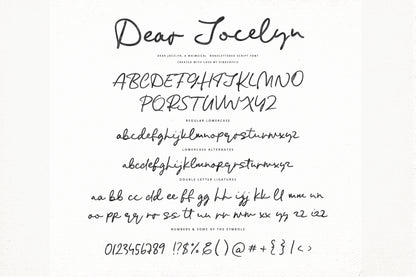 Dear Jocelyn
DEAR JOCELYN, A WHIMSICAL HANDLETTERED SCRIPT FONT
CREATED WITH LOVE BY
ABCDEFGHIJKLMNO
PQRSTUVWXYZ
REGULAR LOWERCASE
abcdefghijklmnopqrstuvwxyz
LOWERCASE ALTERNATES
abcdefghijklmnopqrstuvwxyz
DOUBLE LETTER LIGATURES
aa bb cc dd ee ff gg hh ii jj kk ll mm nn
oo pp qq rr ss tt uu vv ww xx yy zz
NUMBERS & SOME OF THE SYMBOLS
0123456789 !?$%&()@#+{}/<>